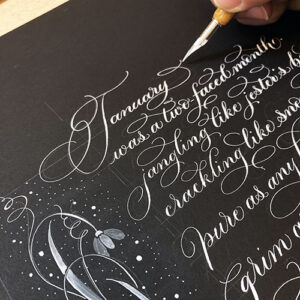 January
was a two-faced month,
jangling like jester's b
crackling like sno
pure as any
grim a